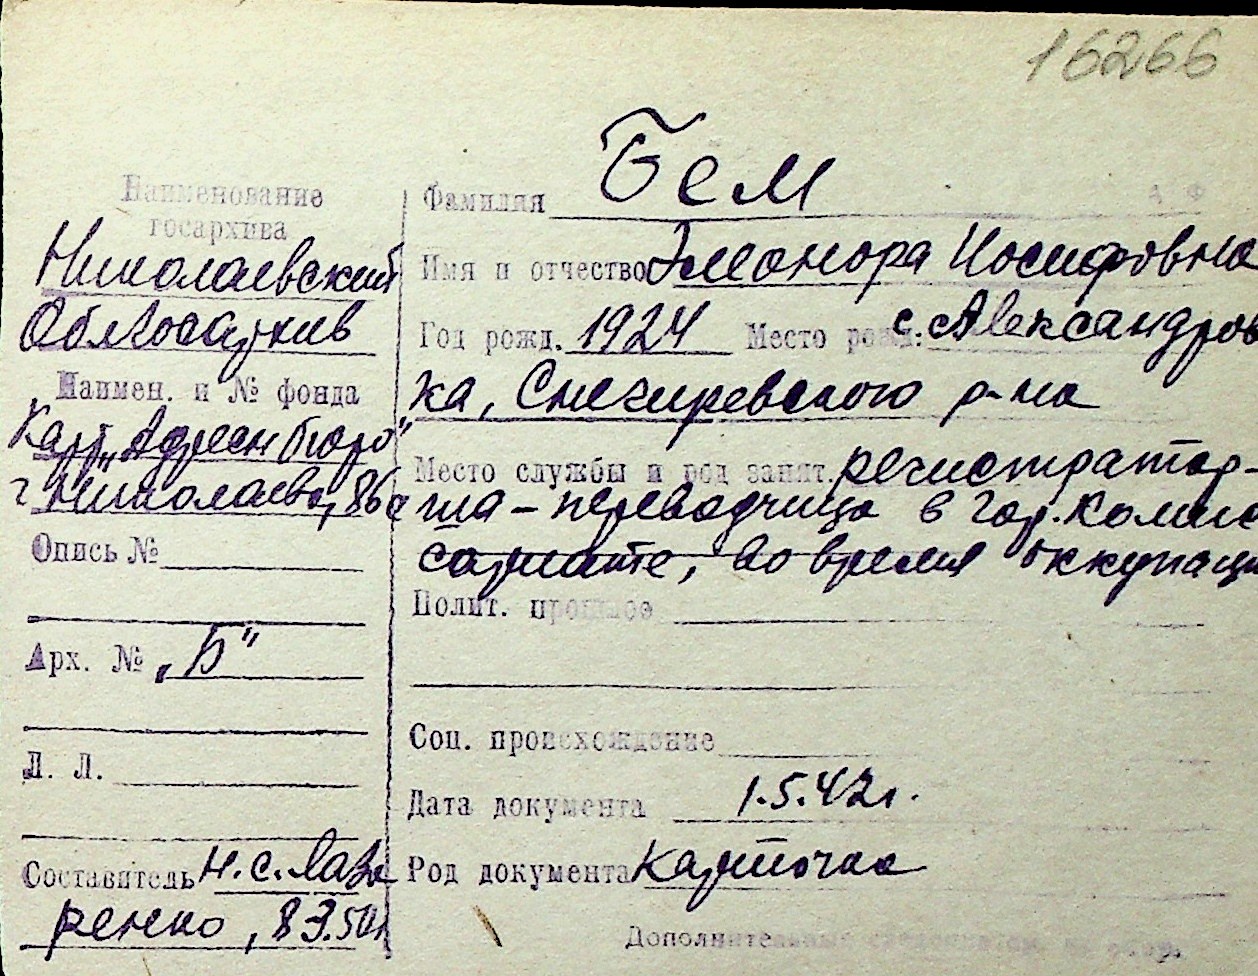 16266
Наименование
госархива
Николаевский
Облгосархив
Наимен. и № фонда
Карт. „Адресн бюро"
г. Николаева, 86а
Опись №
Арх. № „Б"
Л. Л.
Составитель Н. С. Лаза
ренко, 8 3.50г
Фамилия Бем
Имя и отчество Элеонора Иосифовна
Год рожд. 1924 Место рожд: с. Александров
ка, Снегиревского р-на
Место службы и род занят. регистратор-
ша - переводчица в гор. комис
сариате, во время оккупаци
Полит. прошлое
Соц. происхождение
Дата документа 1.5.42г.
Род документа карточка
Дополнительные сведения